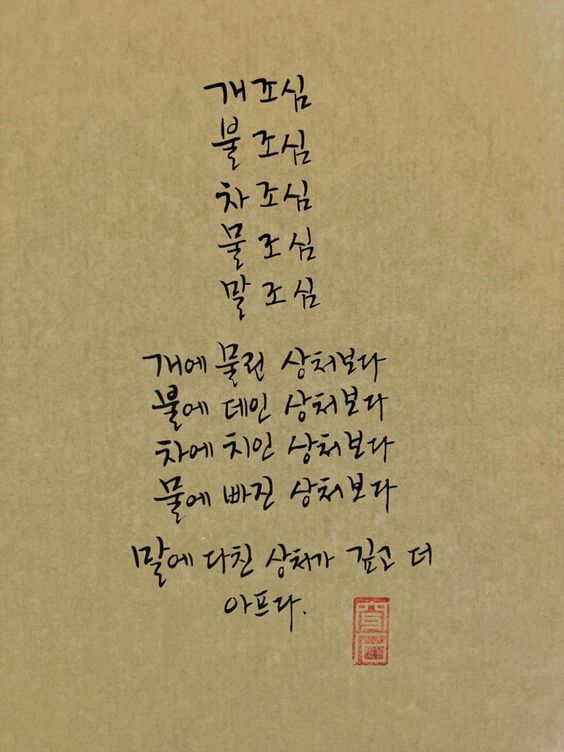 개조심
불조심
차조심
물조심
말조심
개에 물린 상처보다
불에 데인 상처보다
차에 치인 상처보다
물에 빠진 상처보다
말에 다친 상처가 깊고 더
아프다.